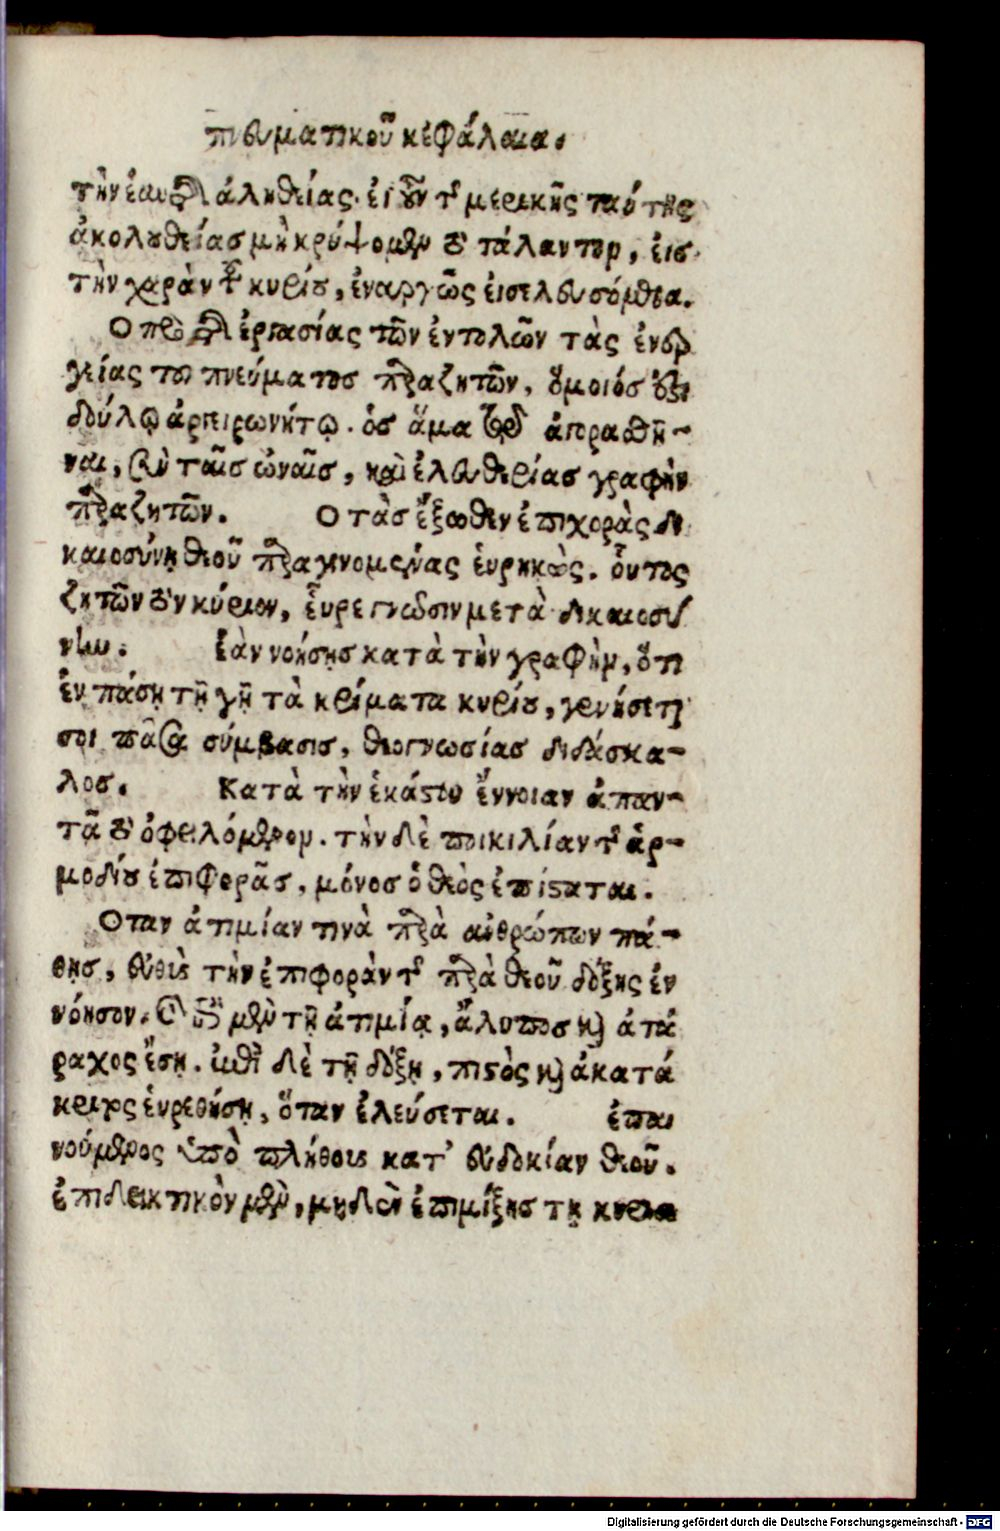 πνευματικοῦ κεφάλαια.
τὴν ἑαυ ἀληθείας. εἰ οὖν τ μερικῆς ταύτης
ἀκολουθείας μὴ κρύψομεν τὸ τάλαντον, εἰς
τὴν χαρὰν τοῦ κυρίου, ἐναργῶς εἰσελευσόμεθα.
Ὁ πρὸ ἐργασίας τῶν ἐντολῶν τὰς ἐνερ
γείας τοῦ πνεύματος παραζητῶν, ὅμοιός ἐστι
δούλῳ ἀργυρωνήτῳ. ὃς ἅμα ἀπραθῆ-
ναι, ἐν ταῖς ὠναῖς, καὶ ἐλευθερίας γραφὴν
παραζητῶν. Ὁ τὰς ἔξωθεν ἐπιφορὰς δι
καιοσύνῃ θεοῦ παραγινομένας εὑρηκώς. οὗτος
ζητῶν τὸν κύριον, εὗρε γνῶσιν μετὰ δικαιοσύ
νην. Ἐὰν νοήσῃς κατὰ τὴν γραφὴν, ὅτι
ἐν πάσῃ τῇ γῇ τὰ κρίματα κυρίου, γενήσεταί
σοι πᾶσα σύμβασις, θεογνωσίας διδάσκα-
λος. Κατὰ τὴν ἑκάστου ἔννοιαν ἀπαν-
τᾶ τὸ ὀφειλόμενον. τὴν δὲ ποικιλίαν τ ἁρ-
μοδίου ἐπιφορᾶς, μόνος ὁ θεὸς ἐπίσταται.
Ὅταν ἀτιμίαν τινὰ παρὰ ἀνθρώπων πά-
θῃς, εὐθὺς τὴν ἐπιφορὰν τ παρὰ θεοῦ δόξης ἐν
νόησον. μὲν τῇ ἀτιμίᾳ, ἄλυπος καὶ ἀτά
ραχος ἔσῃ. δὲ τῇ δόξῃ, πιστὸς καὶ ἀκατά
κριτος εὑρεθήσῃ, ὅταν ἐλεύσεται. ἐπαι
νούμενος ὑπὸ πλήθους κατ' εὐδοκίαν θεοῦ.
ἐπιδεικτικὸν μὲν, μηδὲν ἐπιμίξῃς τῇ
Digitalisierung gefördert durch die Deutsche Forschungsgemeinschaft - DFG